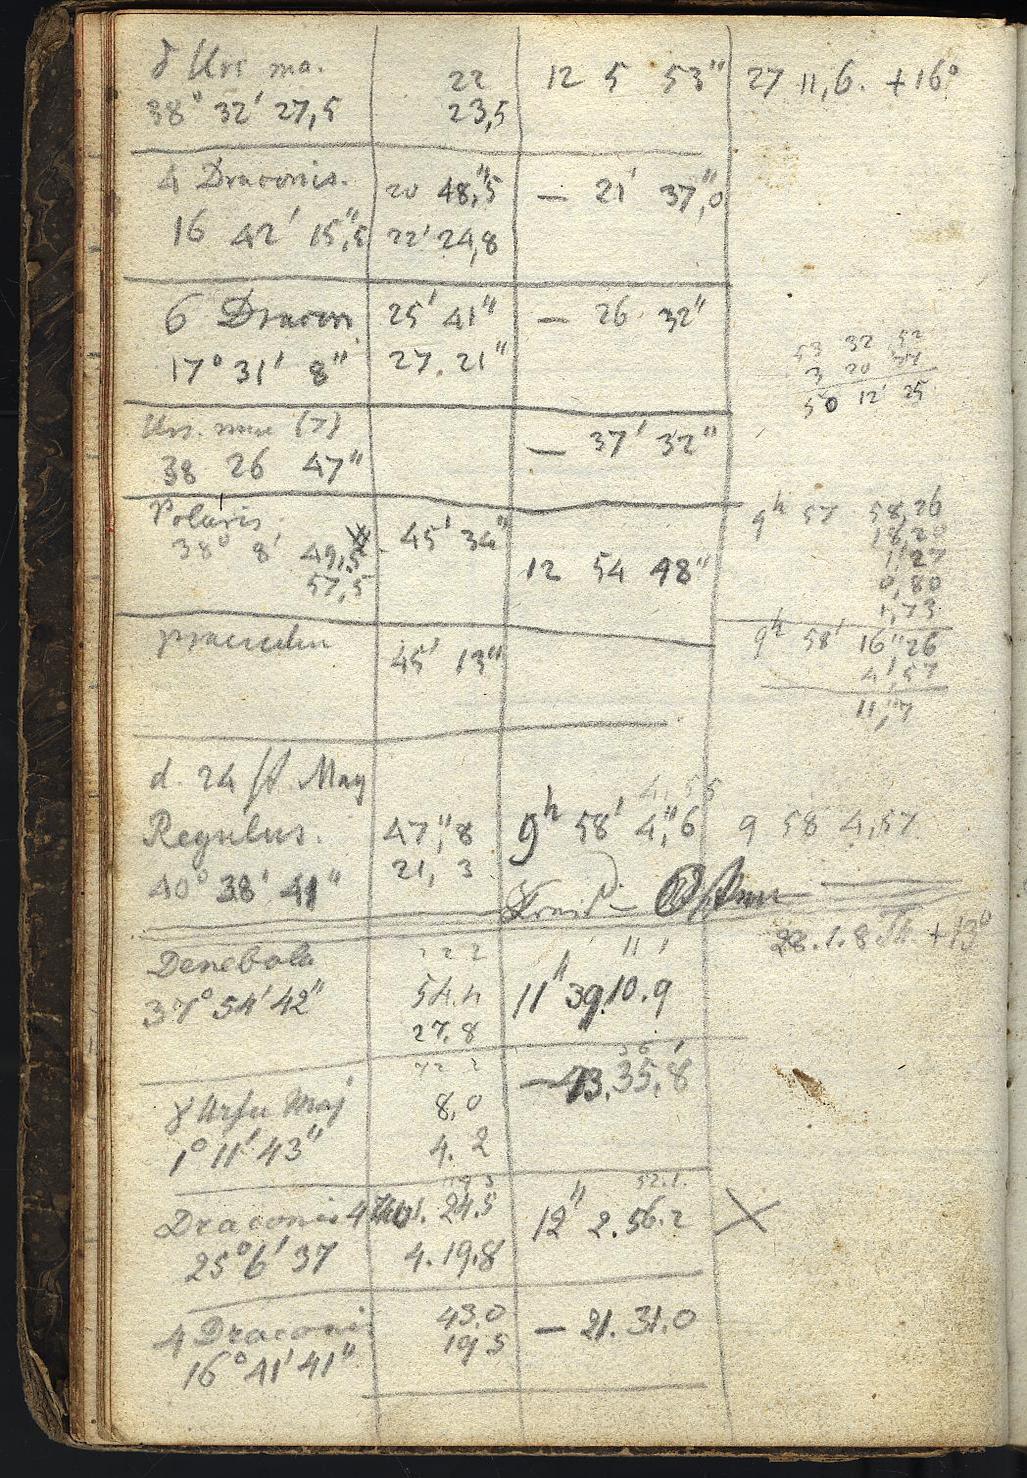 δ Urs ma. 22 12 5 53" 27 11,6. +16°
38° 32' 27,5 23,5
4 Draconis. 20 48,"5 — 21' 37,"0
16 42' 15,"5 22' 24,8
6 Dracon 25' 41" — 26 32"
17° 31' 8" 27. 21"
53 32 52
3 20 27
50 12' 25
Urs. — 37' 32"
38 26 47"
Polaris. 45' 34" 9h 57 58,26
38° 8' 49,5 12 54 48" 18,20
57,5 1,27
0,80
1,73
45' 13" 9h 58' 16"26
4',57
11,"7
d. 24 st. May 4,56
Regulus. 47,"8 9h 58' 4,"6 9 58 4,57
40° 38' 41" 21, 3
28.1.8 Th. +13°
Denebola 22 2
37° 54' 42" 54.4 11" 39.10.9
27.8
22 2 36
γ Ursu Maj 8,0 —43.35.8
1° 11' 43" 4. 2
52.1.
Draconis 4 24.5 12" 2.56.2 X
25° 6' 37 4.19.8
4 Draconi 43.0 — 21.31.0
16° 41' 41" 19 5